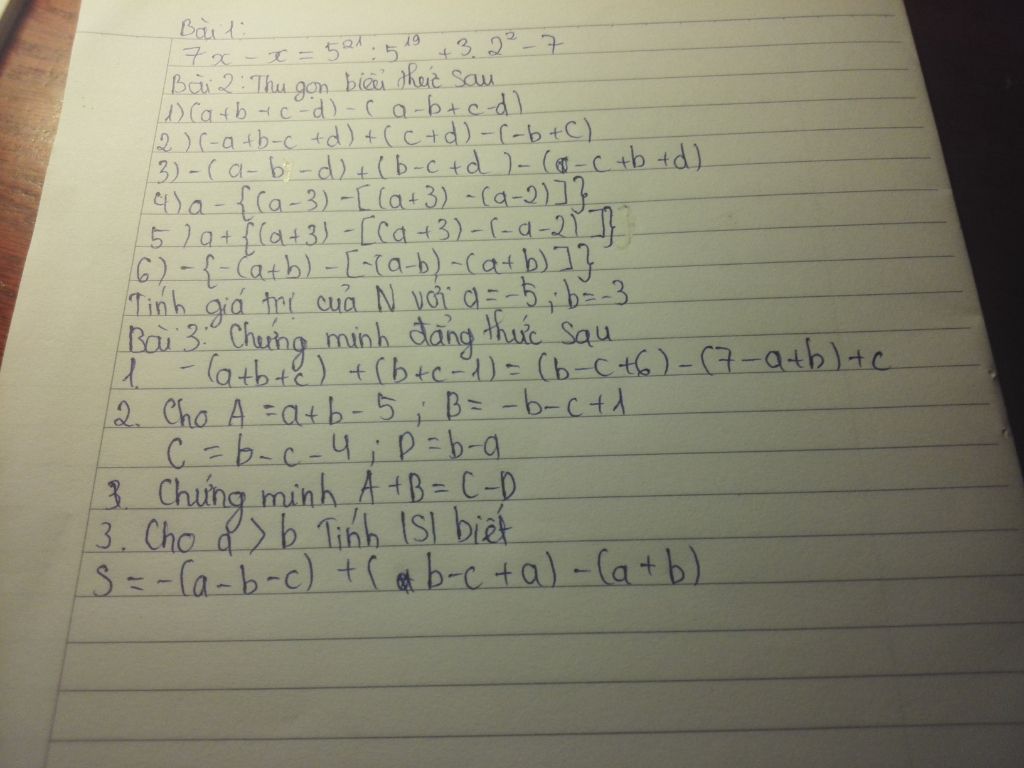 Bài 1:
7x - x = 5²¹ : 5¹⁹ + 3. 2² - 7
Bài 2: Thu gọn biểu thức sau
1) (a+b+c-d) - (a-b+c-d)
2) (-a+b-c+d) + (c+d) - (-b+c)
3) - (a-b-d) + (b-c+d) - (-c+b+d)
4) a - {(a-3) - [(a+3) - (a-2)]}
5) a + {(a+3) - [(a+3) - (-a-2)]}
6) - {-(a+b) - [-(a-b) - (a+b)]}
Tính giá trị của N với a=-5; b=-3
Bài 3: Chứng minh đẳng thức sau
1. -(a+b+c) + (b+c-1) = (b-c+6) - (7-a+b) + c
2. Cho A = a+b-5; B = -b-c+1
C = b-c-4; D = b-a
3. Chứng minh A+B = C-D
3. Cho a > b Tính |S| biết
S = -(a-b-c) + (b-c+a) - (a+b)